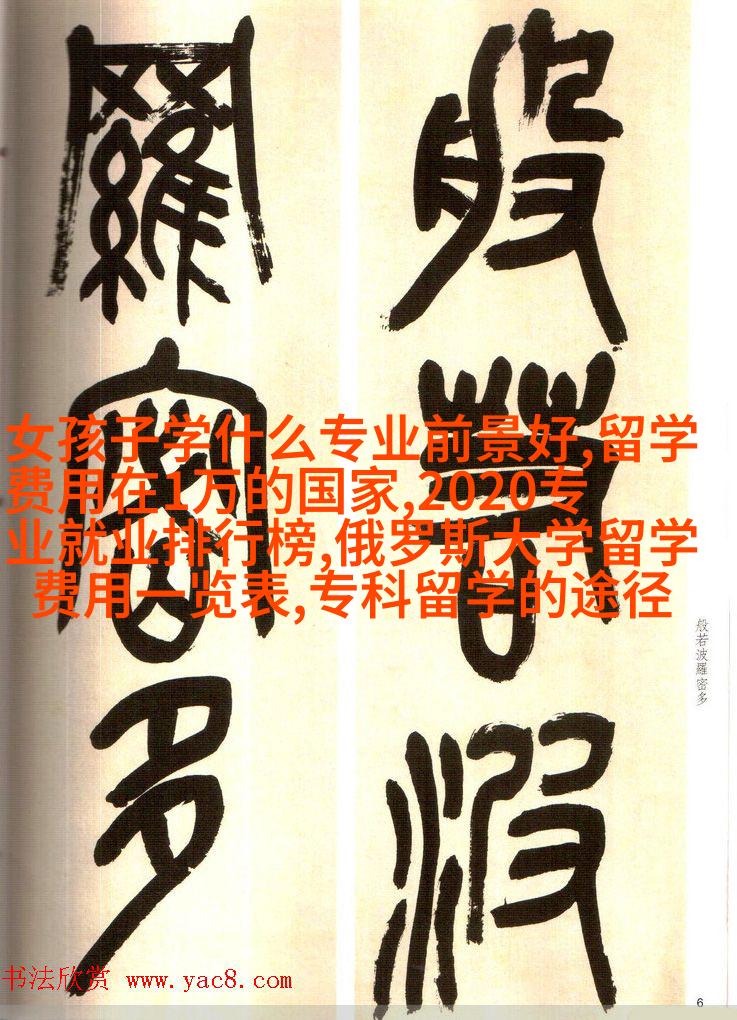 般若波
羅密多
女孩子学什么专业前景好,留学
费用在1万的国家,2020专
业就业排行榜,俄罗斯大学留学
费用一览表,专科留学的途径
般若波羅密多
书法欣赏 www.yac8.com
6